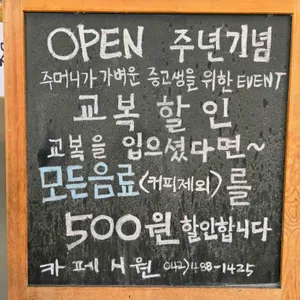 OPEN 주년기념
주머니가 가벼운 중고생을 위한 EVENT
교복할인
교복을 입으셨다면~
모든음료(커피제외)를
500원 할인합니다
카페시원 042)488-1425